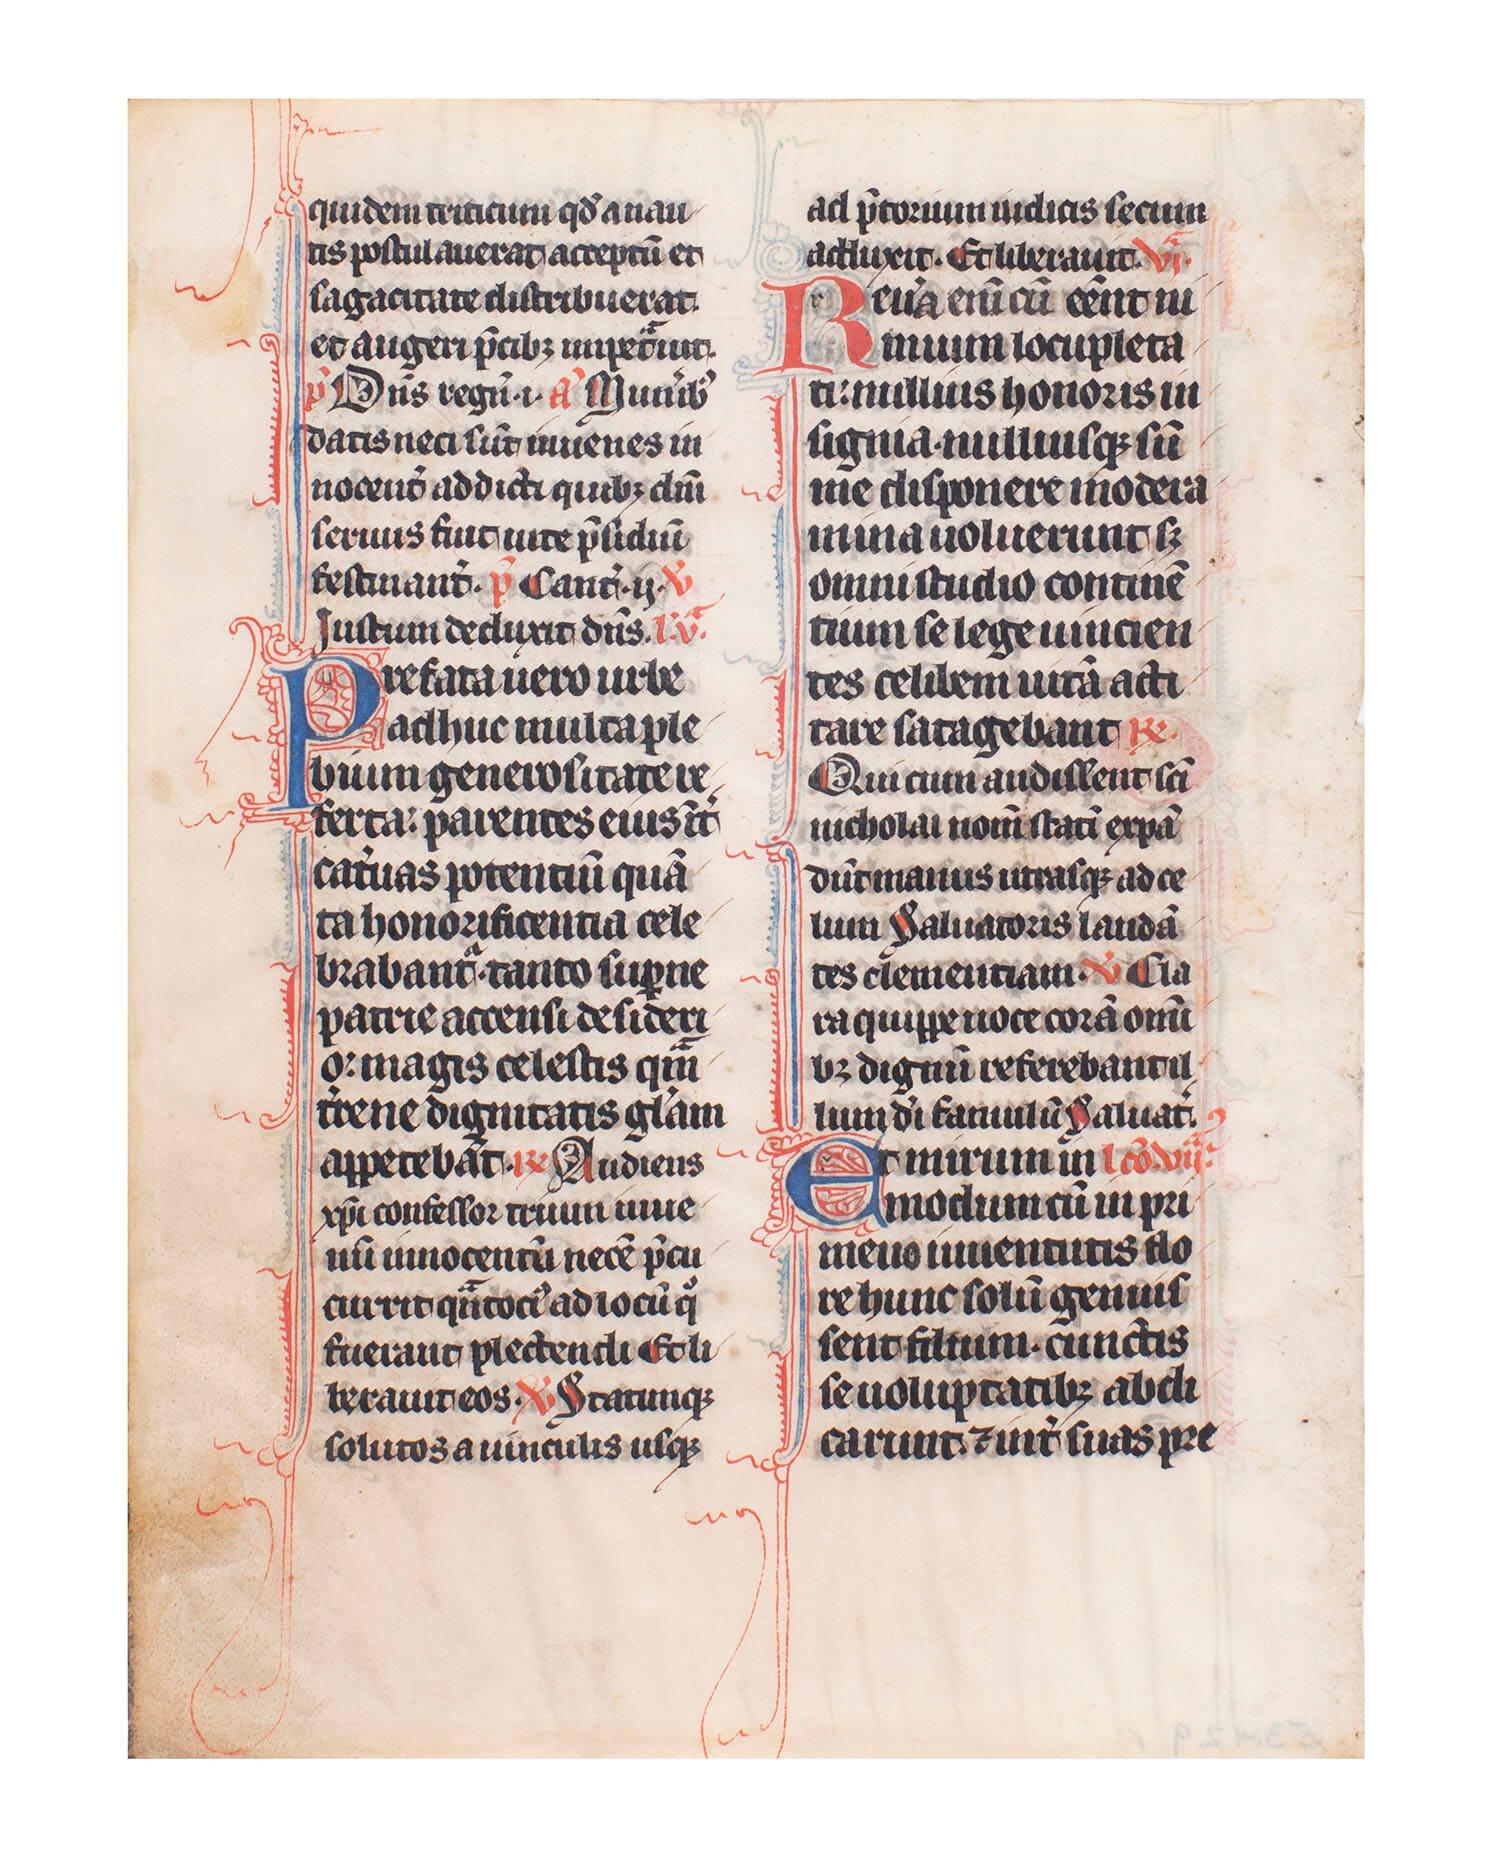 quidem triticum qd̓ a nau
tis postulauerat acceptū et
sagacitate distribuerat.
et augeri p̄cib₃ impet̾uit.
p̄ Dn̄s regn̄·i· a͞ Mun̓ib᷒
datis neci sūt iuuenes in
nocent̓ addicti quib₃ dn̄i
seruus fuit uite p̄sidiū
festinant̓. p̄ Cant̓·ij·℣
Justum deduxit dn̄s. l'.vͣ.
Prefata uero urbe
adhuc multa ple
bium generositate re
ferta: parentes eius īt̓
cat̓uas potentiū quā
ta honorificentia cele
brabant̾·tanto sup̱ne
patrie accensi desideri
o: magis celestis qm̾̄
t̓rene dignitatis gl̓am
appetebāt. ℟ Audiens
xp̄i confessor trium iuue
nū innocentū necē p̄cu
currit qn̾̄toci᷒ ad locū q°
fuerant plectendi Et li
berauit eos. ℣ Statimq₃
solutos a uinculis usq₃
ad p̄torium iudicis secum
adduxit. Et liberauit. viͣ.
Reu̓a eni̅ cū eēnt ni
mium locupleta
ti: nullius honoris in
signia·nulliusq₃ sūi
me disponere modera
mina uoluerunt s₃
omni studio continē
tium se lege uincien
tes celibem uitā acti
tare satagebant ℟.
Qui cum audissent sc̄i
nicholai nom̄ statī expā
dūt manus utrasq₃ ad ce
lum Saluatoris laudā
tes clementiam. ℣ Cla
ra quippe uoce corā omi̅
b₃ dignū referebant il
lum di̓ famulū Saluat̓.
Et mirum in lc̄o.vijͣ.
modum cū in pri
meuo iuuentutis flo
re hunc solū genuis
sent filium· cunctis
se uoluptatib₃ abdi
carunt. ⁊ int̓ suas pre